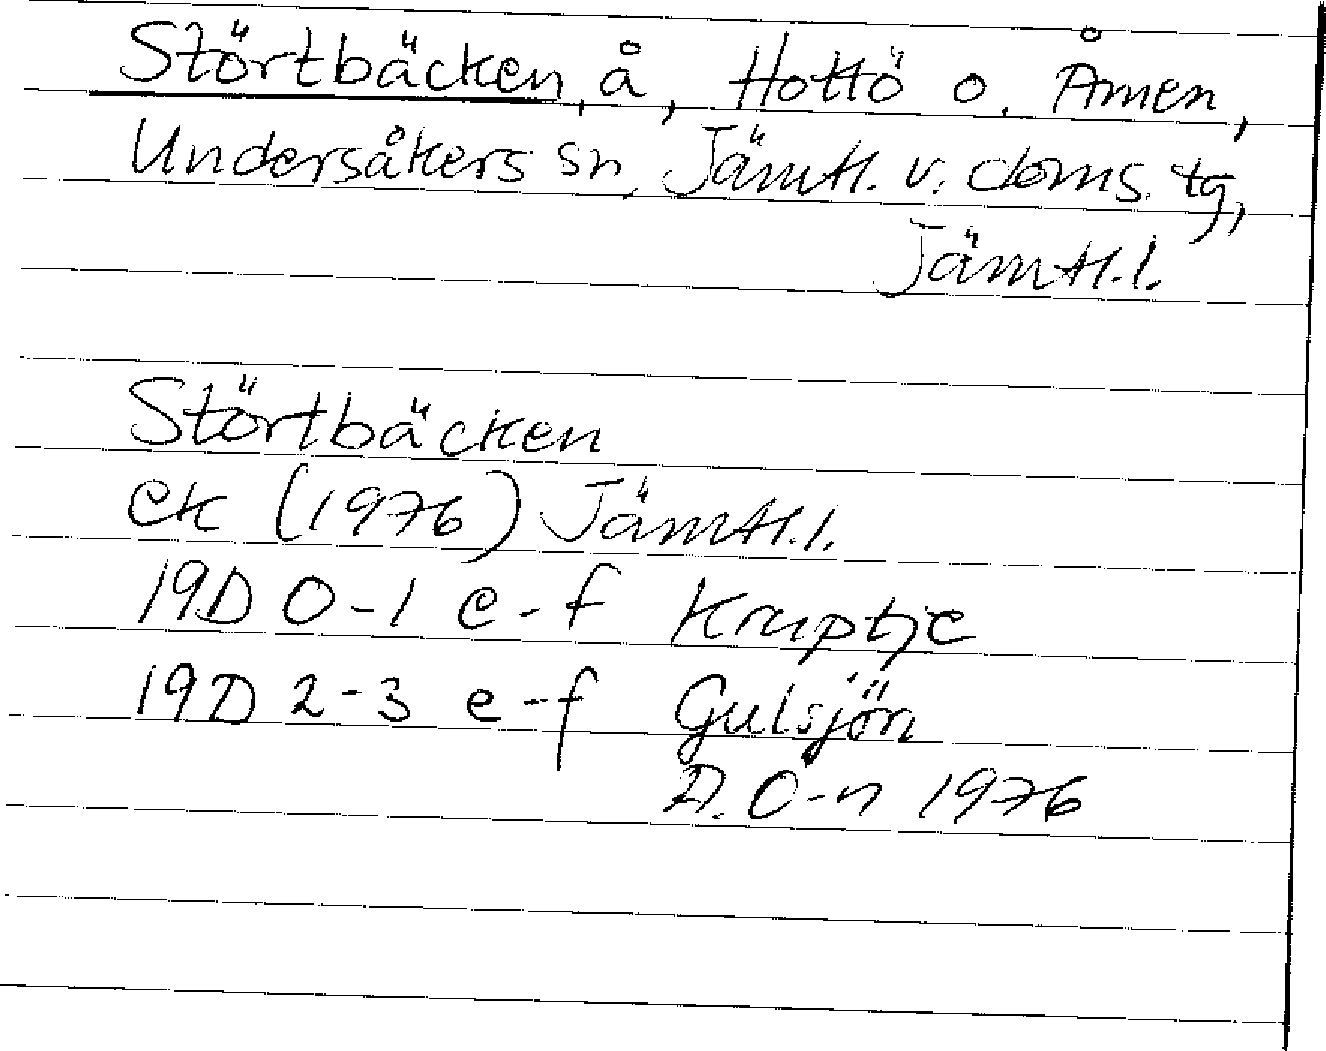 Störtbäcken, å, Hottö o. Åmen,
Undersåkers sn, Jämtl. v. doms. tg,
Jämtl. l.
Störtbäcken
ek (1976) Jämtl. l.
19D 0-1 e-f Kruptje
19D 2-3 e-f Gulsjön
D. Ö-n 1976